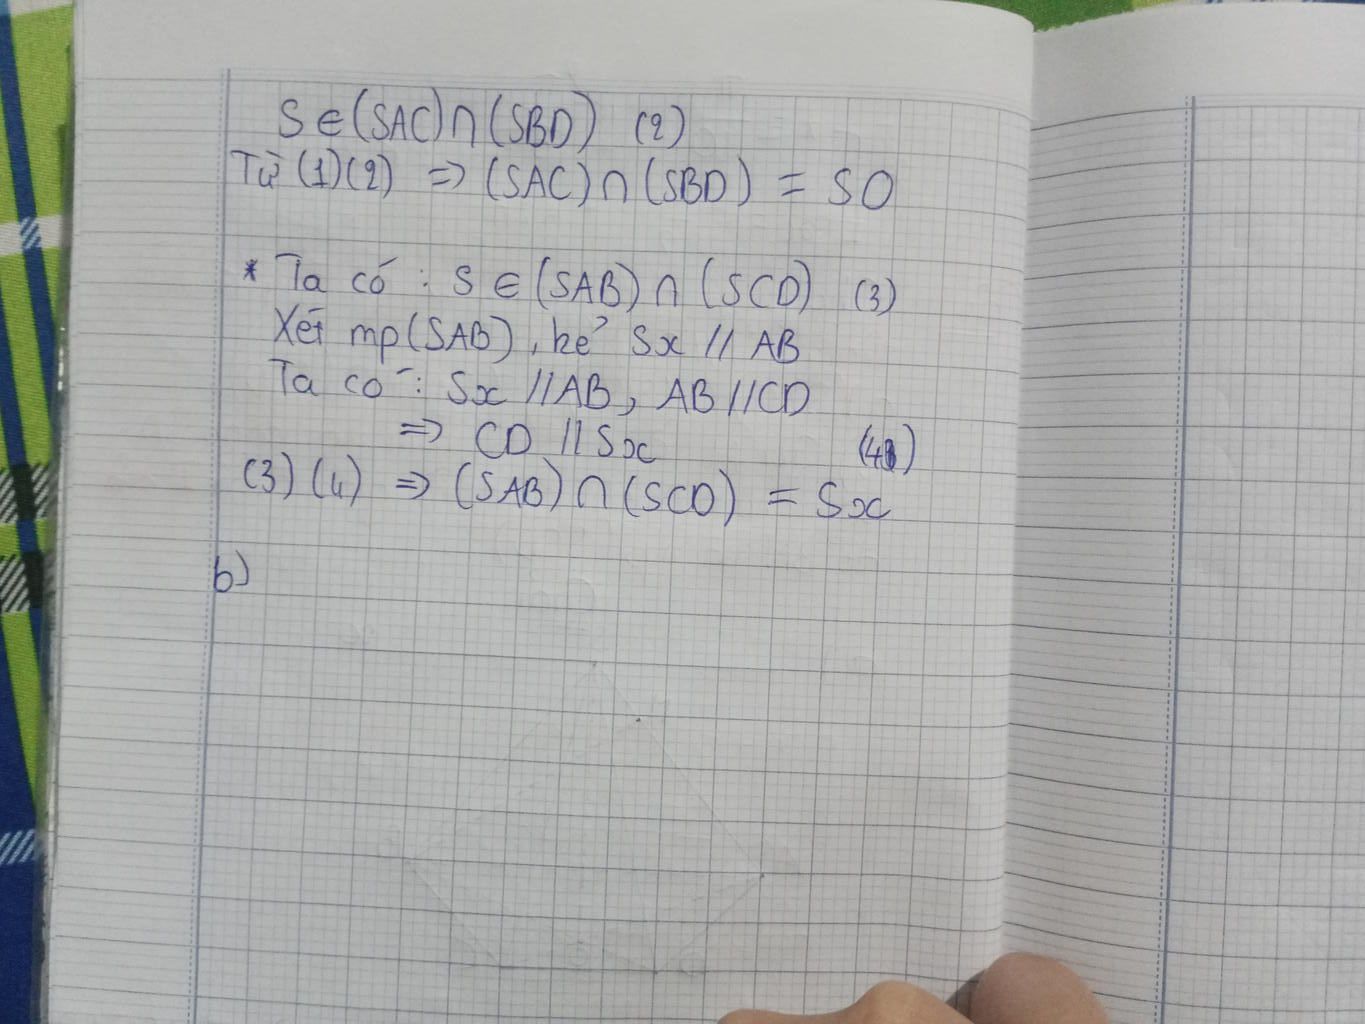 S ∈ (SAC) ∩ (SBD) (2)
Từ (1)(2) => (SAC) ∩ (SBD) = SO
* Ta có : S ∈ (SAB) ∩ (SCD) (3)
Xét mp(SAB), kẻ Sx // AB
Ta có : Sx // AB, AB // CD
=> CD // Sx (4)
(3) (4) => (SAB) ∩ (SCD) = Sx
b)